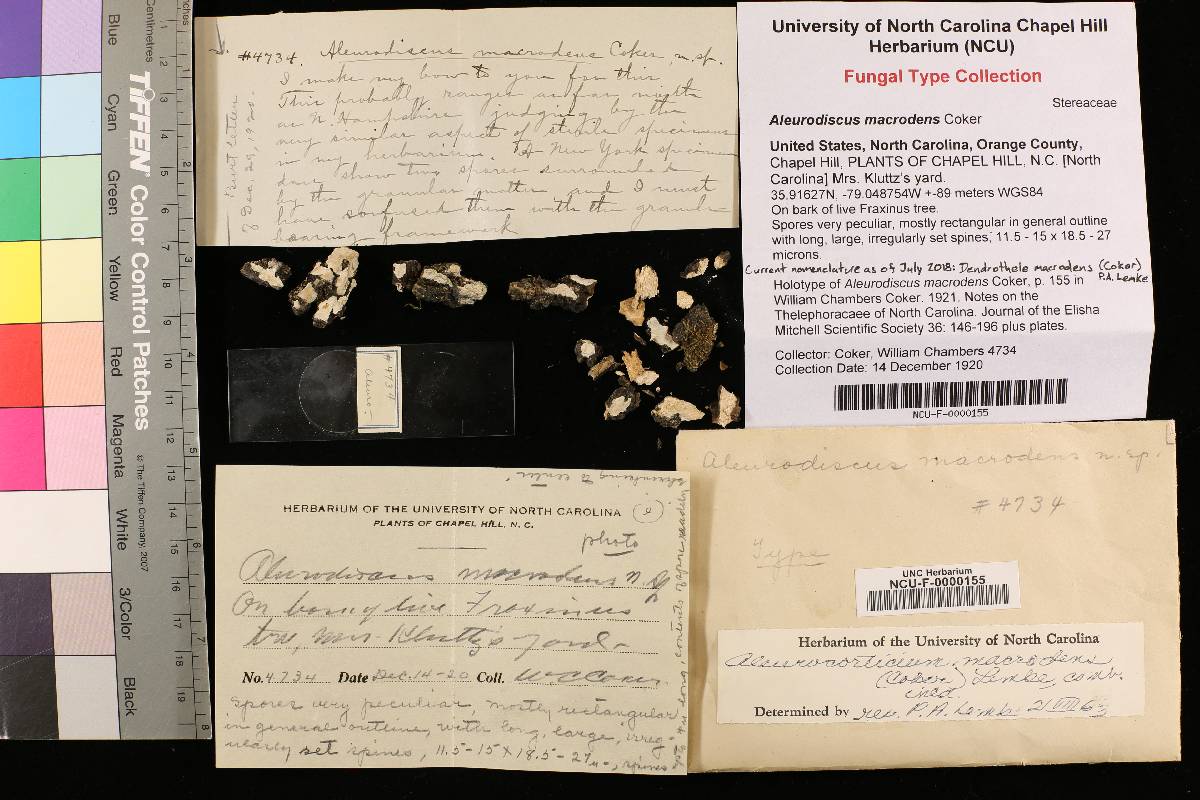 Inches
Centimetres
TIFFEN® Color Control Patches
© The Tiffen Company, 2007
Blue
Cyan
Green
Yellow
Red
Magenta
White
3/Color
Black
#4734. Aleurodiscus macrodens Coker, n. sp.
I make my bow to you for this
This probably ranges as far north
as N. Hampshire judging by the
very similar aspect of sterile specimens
in my herbarium. A New York specimen
does show two spores surrounded
by the granular matter and I must
have confused them with the granule
bearing framework
Burt letter
Dec. 29, 1920.
University of North Carolina Chapel Hill
Herbarium (NCU)
Fungal Type Collection
Stereaceae
Aleurodiscus macrodens Coker
United States, North Carolina, Orange County,
Chapel Hill, PLANTS OF CHAPEL HILL, N.C. [North
Carolina] Mrs. Kluttz's yard.
35.91627N, -79.048754W +-89 meters WGS84
On bark of live Fraxinus tree.
Spores very peculiar, mostly rectangular in general outline
with long, large, irregularly set spines; 11.5 - 15 x 18.5 - 27
microns.
Current nomenclature as of July 2018: Dendrothele macrodens (Coker)
P.A. Lemke
Holotype of Aleurodiscus macrodens Coker, p. 155 in
William Chambers Coker. 1921. Notes on the
Thelephoracaee of North Carolina. Journal of the Elisha
Mitchell Scientific Society 36: 146-196 plus plates.
Collector: Coker, William Chambers 4734
Collection Date: 14 December 1920
NCU-F-0000155
#4734
Aleuro-
HERBARIUM OF THE UNIVERSITY OF NORTH CAROLINA
PLANTS OF CHAPEL HILL, N. C.
photo
Aleurodiscus macrodens n. sp
On bark of live Fraxinus
tree, Mrs. Kluttz's yard-
No. 4734 Date Dec. 14-20 Coll. W C Coker
Spores very peculiar, mostly rectangular
in general outline, with long, large, irreg-
ularly set spines, 11.5-15 x 18.5-27µ-, spines
Aleurodiscus macrodens n. sp.
#4734
Type
UNC Herbarium
NCU-F-0000155
Herbarium of the University of North Carolina
Aleurocorticium macrodens
(Coker) Lemke, comb.
ined.
Determined by rev. P. A. Lemke